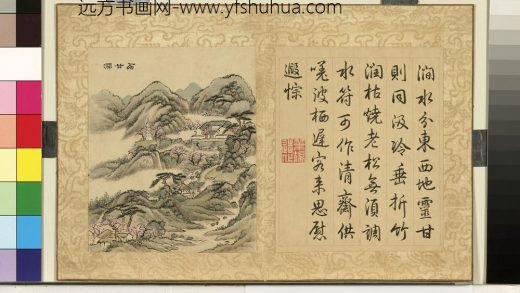 远方书画网-www.yfshuhua.com
涧水分東西地靈甘
則同汲冷垂折竹
潤枯燒老松無須調
水符可作清齋供
嘆波栖遲客来思慰
遐悰